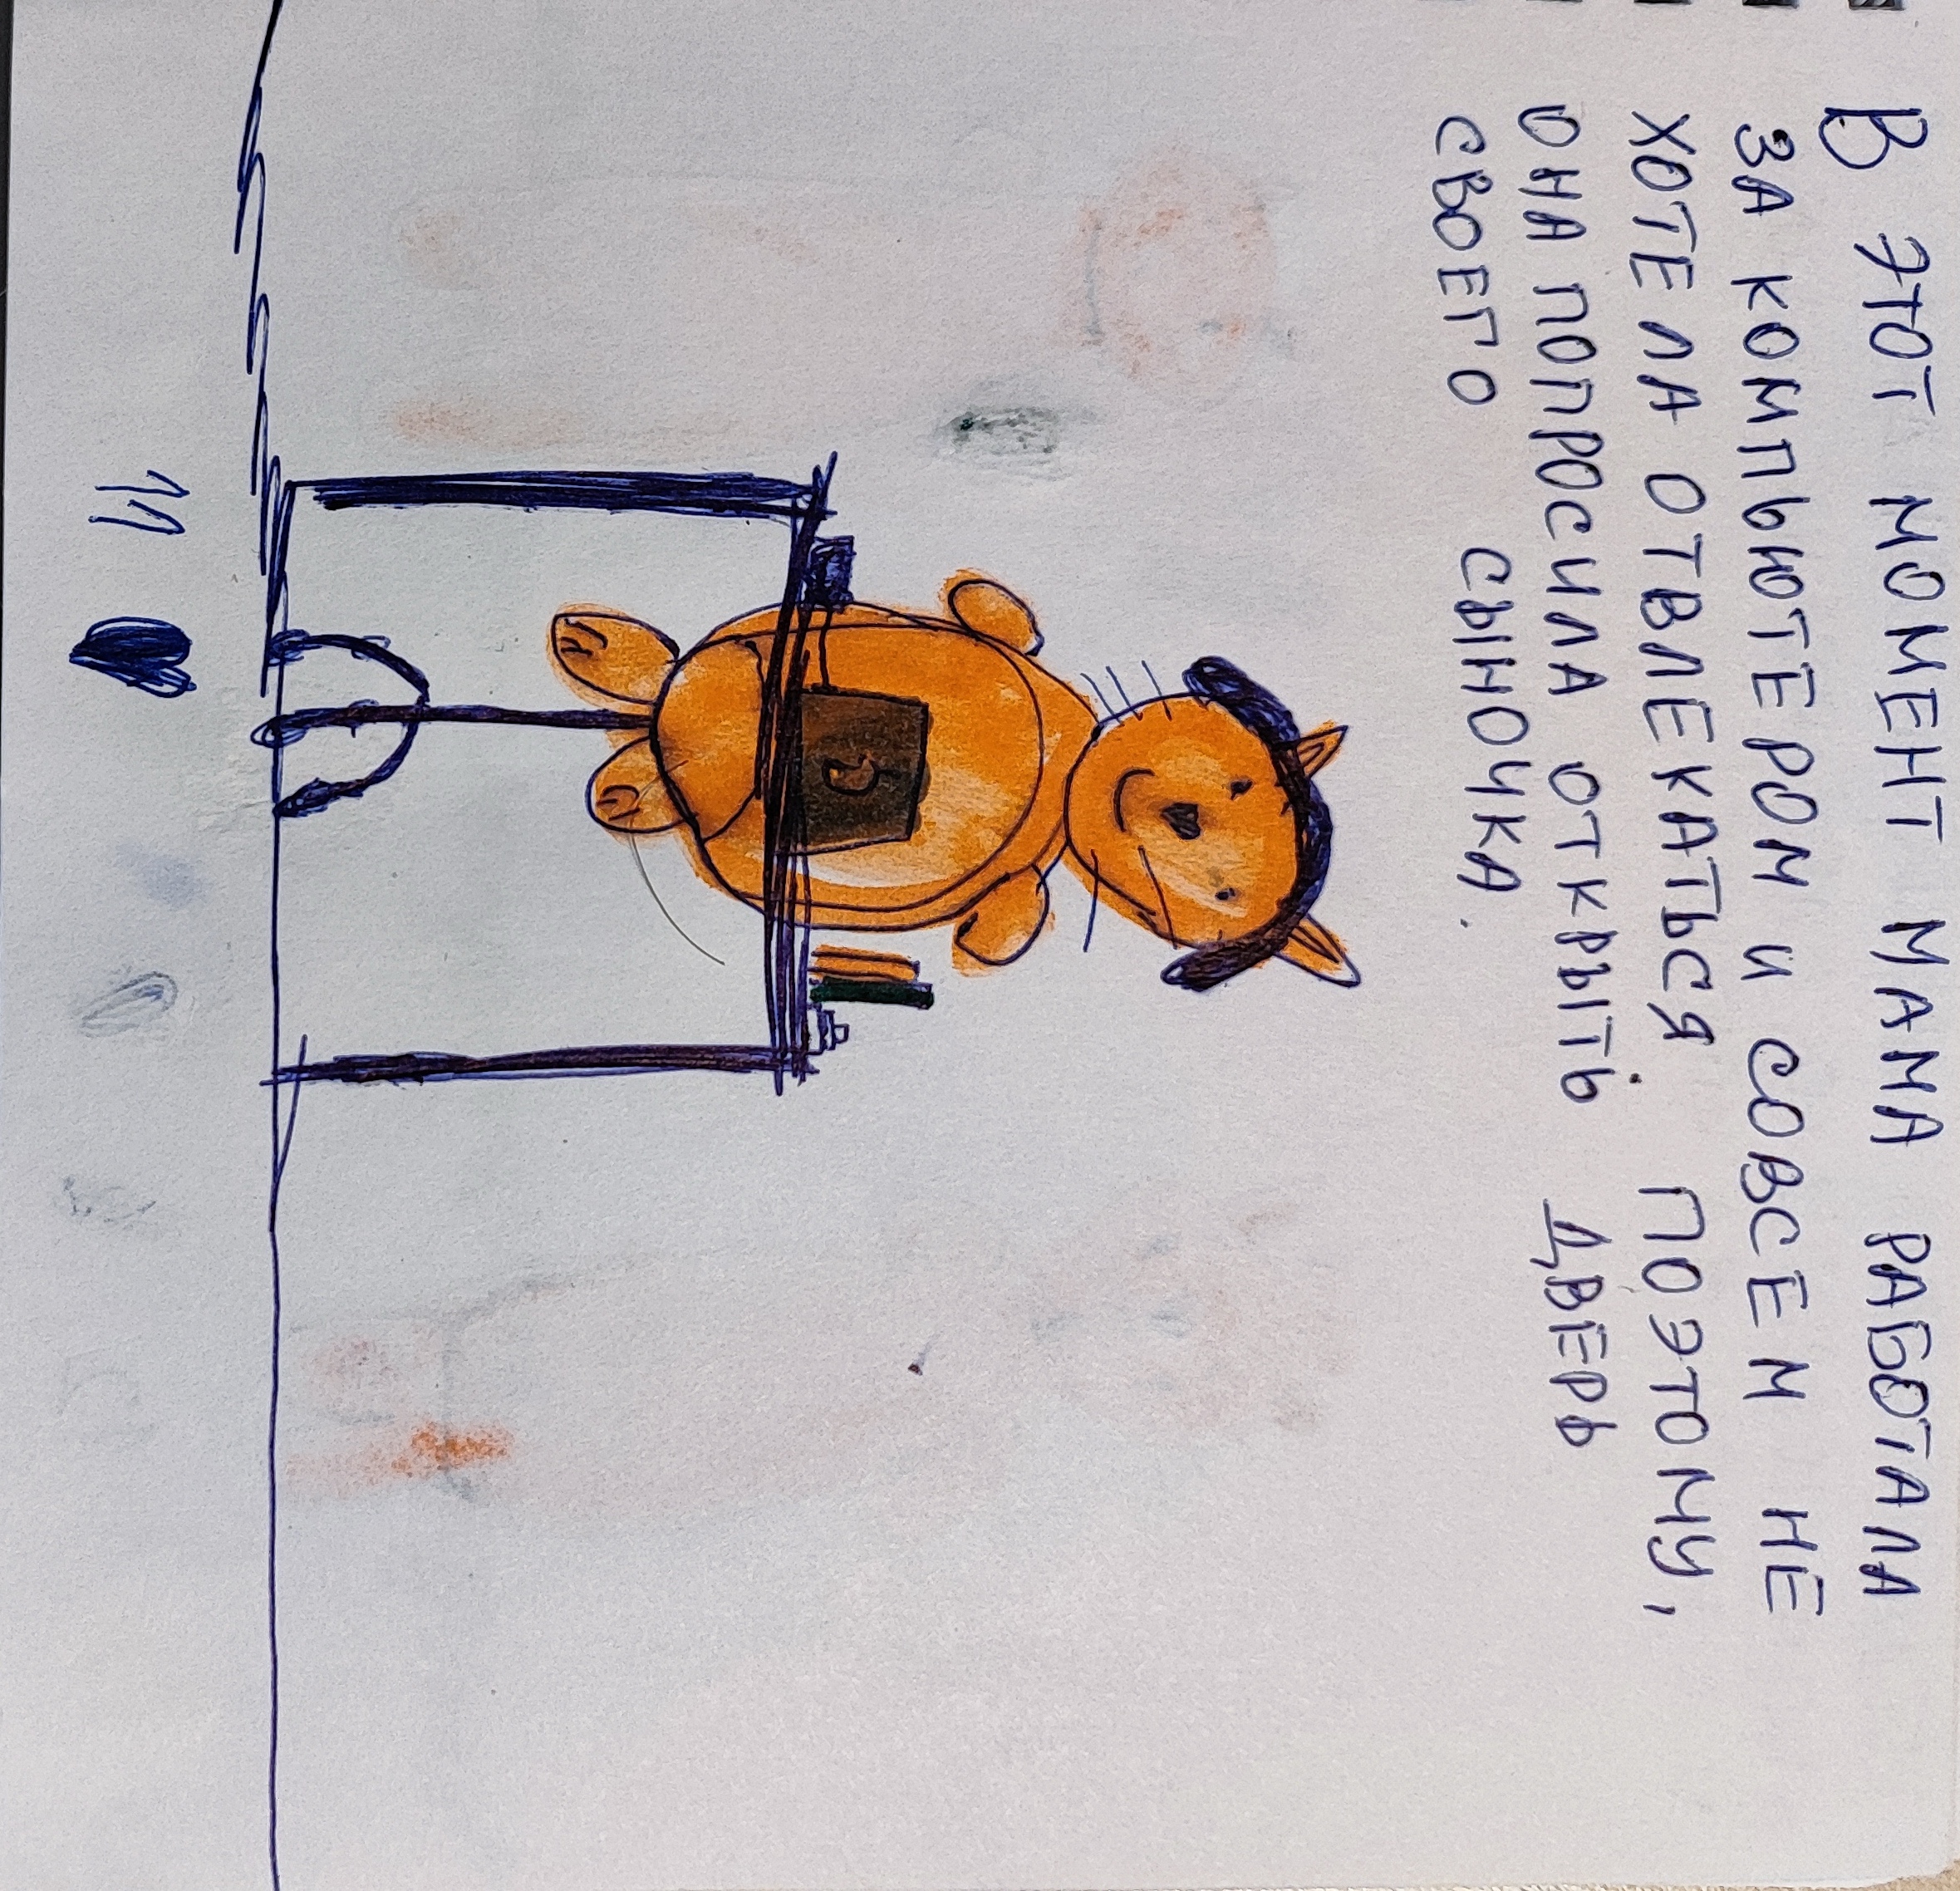 В ЭТОТ МОМЕНТ МАМА РАБОТАЛА
ЗА КОМПЬЮТЕРОМ И СОВСЕМ НЕ
ХОТЕЛА ОТВЛЕКАТЬСЯ. ПОЭТОМУ,
ОНА ПОПРОСИЛА ОТКРЫТЬ ДВЕРЬ
СВОЕГО СЫНОЧКА.
11